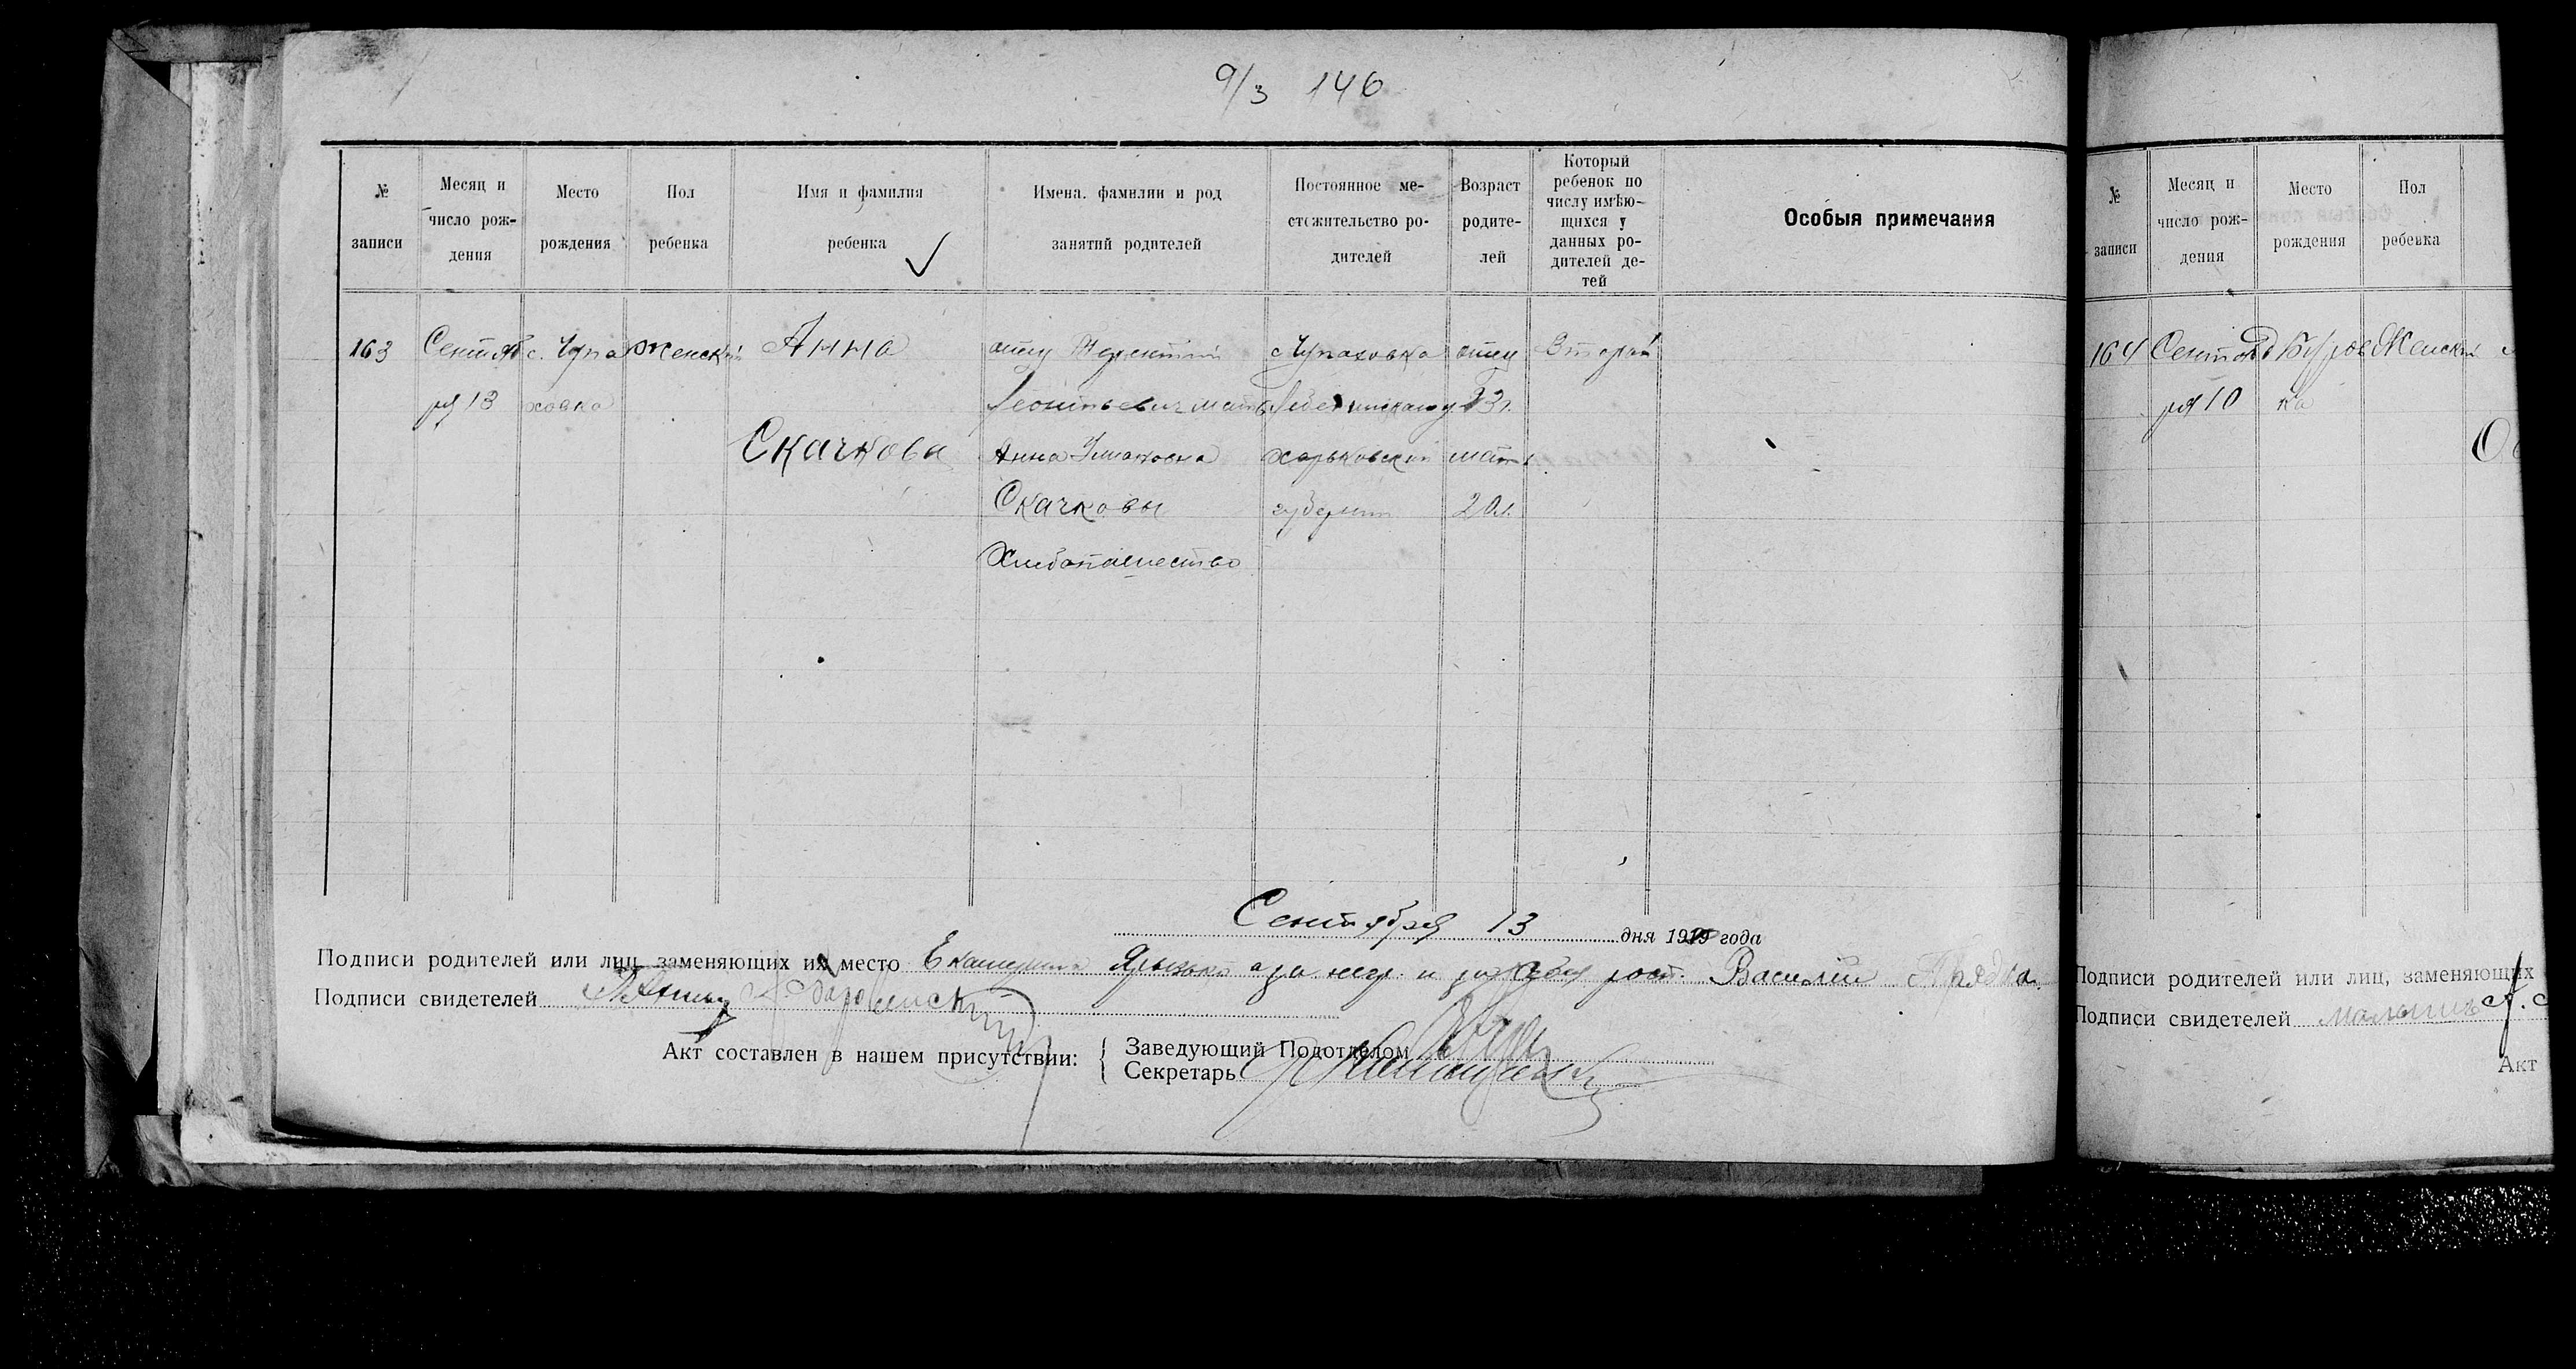 9/3 146
№ записи
Месяц и число рож-дения
Место рождения
Пол ребенка
Имя и фамилия ребенка
Имена. фамилии и род занятий родителей
Постоянное ме-стожительство ро-дителей
Возраст родите-лей
Который ребенок по числу имѣю-щихся у данных ро-дителей де-тей
Особыя примечания
163 Сентяб с. Чупа Женский Анна отец Терентий с Чупаховка отец Второй
ря 13 ховка Леонтьевич мать 23 л.
Скачкова Анна харьковской мать
Скачковы губернии 20 л.
Хлебопашество
Сентября 13 дня 19 года
Подписи родителей или лиц, заменяющих их место Екатерина а за негр. и рост. Василий
Подписи свидетелей
Акт составлен в нашем присутствии:
Заведующий Подотделом
Секретарь
№ записи
Месяц и число рож-дения
Место рождения
Пол ребенка
164 Сентяб Женский
ря 10 ка
Подписи родителей или лиц, заменяющих
Подписи свидетелей
Акт